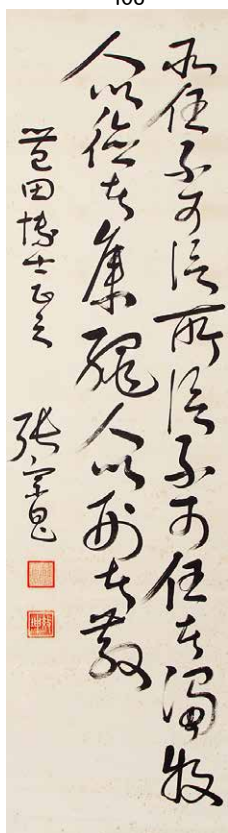 所任不可信所信不可任者濁牧
人以德者集繩人以刑者散
田博士正之 張宗昌